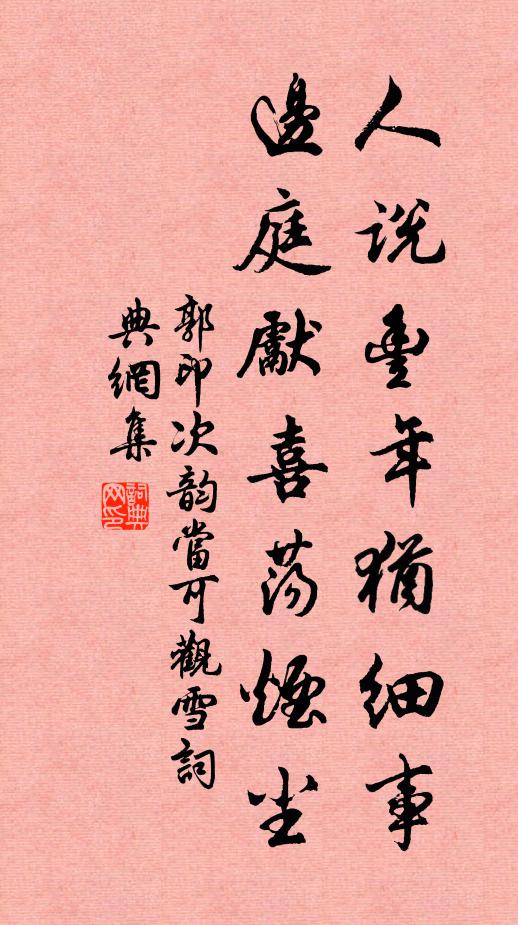 人說豐年猶細事
邊庭獻喜蕩煙尘
郭印次韵當可觀雪詞
典網集
詞典
网印